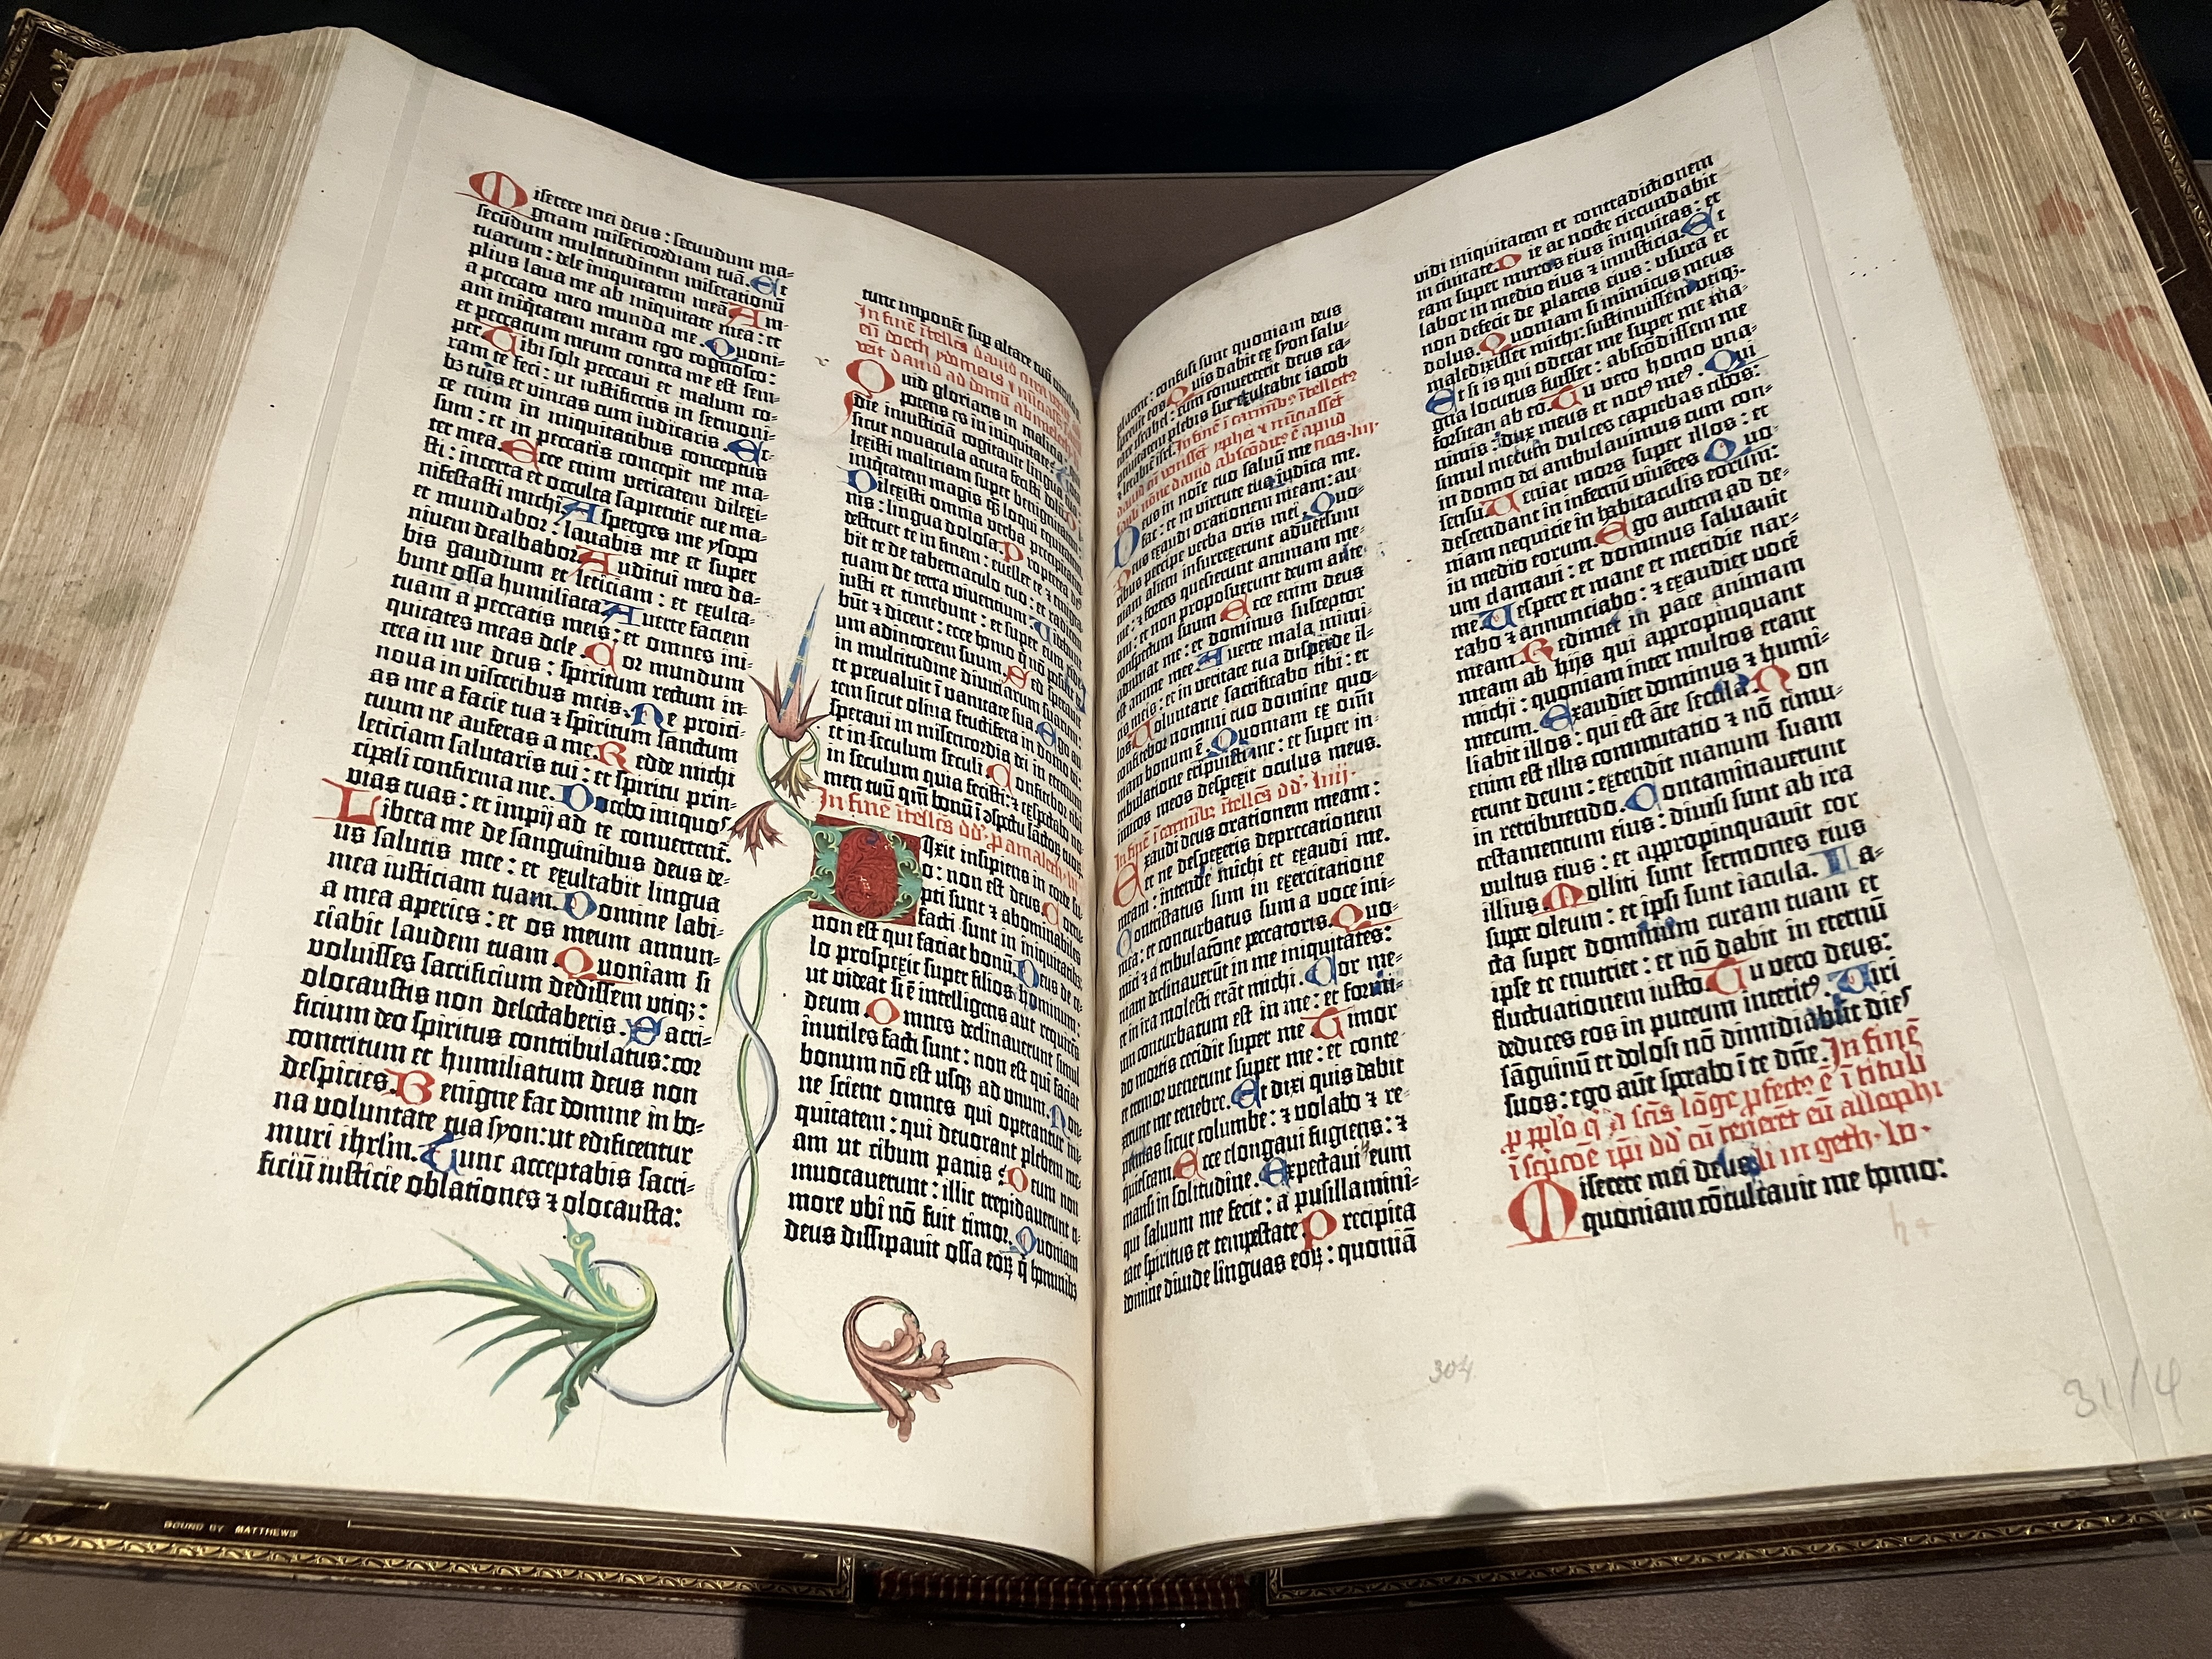 Miserere mei deus : secundum ma-
gnam misericordiam tuā. Et
secūdum multitudinem miserationū
tuarum : dele iniquitatem meā. Am-
plius laua me ab iniquitate mea : et
a peccato meo munda me. Quoni-
am iniq̄tatem meam ego cognosco :
et peccatum meum contra me est sem-
per. Tibi soli peccaui et malum co-
ram te feci : ut iustificeris in sermoni-
bꝫ tuis et vincas cum iudicaris. Ec-
ce enim in iniquitatibus conceptus
sum : et in peccatis concepit me ma-
ter mea. Ecce enim veritatem dilexi-
sti : incerta et occulta sapientie tue ma-
nifestasti michi. Asperges me ysopo
et mundabor : lauabis me et super
niuem dealbabor. Auditui meo da-
bis gaudium et leticiam : et exulta-
bunt ossa humiliata. Auerte faciem
tuam a peccatis meis : et omnes ini-
quitates meas dele. Cor mundum
crea in me deus : spiritum rectum in-
noua in visceribus meis. Ne proici-
as me a facie tua ⁊ spiritum sanctum
tuum ne auferas a me. Redde michi
leticiam salutaris tui : et spiritu prin-
cipali confirma me. Docebo iniquos
vias tuas : et impij ad te conuertent̄.
Libera me de sanguinibus deus de-
us salutis mee : et exultabit lingua
mea iusticiam tuam. Domine labi-
a mea aperies : et os meum annun-
ciabit laudem tuam. Quoniam si
voluisses sacrificium dedissem vtiqꝫ :
olocaustis non delectaberis. Sacri-
ficium deo spiritus contribulatus : cor
contritum et humiliatum deus non
despicies. Benigne fac domine in bo-
na voluntate tua syon : ut edificentur
muri ihrlm̄. Tunc acceptabis sacri-
ficiū iusticie oblationes ⁊ olocausta :
tunc imponēt sup altare tuū
In finē ītellcs̄ dauid
Quid gloriaris in malicia :
potens es in iniquitate :
die iniusticiā cogitauit lingua
sicut nouacula acuta fecisti dolū.
lexisti maliciam super benignitatē :
iniq̄tatem magis q̄ loqui equitatem.
Dilexisti omnia verba precipitatio-
nis : lingua dolosa. Propterea deus
destruet te in finem : euellet te ⁊
bit te de tabernaculo tuo : et radicem
tuam de terra viuentium. Videbunt
iusti et timebunt : et super eum ride-
būt ⁊ dicent : ecce homo q̄ nō posuit de-
um adiutorem suum. Sed sperauit
in multitudine diuitiarum suarum :
et preualuit ī vanitate sua. Ego au-
tem sicut oliua fructifera in domo dei :
speraui in misericordia dei in eternum
et in seculum seculi. Confitebor tibi
in seculum quia fecisti : ⁊ expectabo no-
men tuū qm̄ bonū ī ↄspectu sāctorum tuoꝝ.
In finē ītellcs̄ dd'. p amalech. lii
Dixit insipiens in corde su-
o : non est deus. Corru-
pti sunt ⁊ abominabiles
facti sunt in iniquitatibus :
non est qui faciat bonū. Deus de ce-
lo prospexit super filios hominum :
ut videat si ē intelligens aut requirēs
deum. Omnes declinauerunt simul
inutiles facti sunt : non est qui faciat
bonum nō est usqꝫ ad vnum. Non-
ne scient omnes qui operantur ini-
quitatem : qui deuorant plebem me-
am ut cibum panis : Deum non
inuocauerunt : illic trepidauerunt ti-
more vbi nō fuit timor. Quoniam
deus dissipauit ossa eoꝝ q̄ hominibꝫ
placent : confusi sunt quoniam deus
spreuit eos. Quis dabit ex syon salu-
tare israhel : cum conuerterit deus ca-
ptiuitatem plebis sue exultabit iacob
⁊ letabit' isrl̄. In finē ī carminibꝫ ītellectꝰ
dauid cū venissēt zyphei ⁊ nūciassēt
saul nōne dauid abscōditꝰ ē apud nos. liij.
Deus in noīe tuo saluū me
fac : et in virtute tua iudica me.
Deus exaudi orationem meam : au-
ribus percipe verba oris mei. Quo-
niam alieni insurrexerunt aduersum
me : ⁊ fortes quesierunt animam me-
am : et non proposuerunt deum ante
conspectum suum. Ecce enim deus
adiuuat me : et dominus susceptor
est anime mee. Auerte mala inimi-
cis meis : et in veritate tua disperde il-
los. Voluntarie sacrificabo tibi : et
confitebor nomini tuo domine quo-
niam bonum ē. Quoniam ex omī
tribulatione eripuisti me : et super in-
imicos meos despexit oculus meus.
In finē ī carminibꝫ ītellcs̄ dd'. liiij.
Exaudi deus orationem meam :
et ne despexeris deprecationem
meam : intende michi et exaudi me.
Contristatus sum in exercitatione
mea : et conturbatus sum a voce ini-
mici ⁊ a tribulatōne peccatoris. Quo-
niam declinauerūt in me iniquitates :
et in ira molesti erāt michi. Cor me-
um conturbatum est in me : et formi-
do mortis cecidit super me. Timor
et tremor venerunt super me : et conte-
xerunt me tenebre. Et dixi quis dabit
pennas sicut columbe : ⁊ volabo ⁊ re-
quiescam. Ecce elongaui fugiens : ⁊
mansi in solitudine. Expectaui eum
qui saluum me fecit : a pusillanimi-
tate spiritus et tempestate. Precipita
domine diuide linguas eoꝝ : quoniā
vidi iniquitatem et contradictionem
in ciuitate. Die ac nocte circundabit
eam super muros eius iniquitas : et
labor in medio eius ⁊ iniusticia. Et
non defecit de plateis eius : vsura et
dolus. Quoniam si inimicus meus
maledixisset michi : sustinuissem vtiqꝫ.
Et si is qui oderat me super me ma-
gna locutus fuisset : abscōdissem me
forsitan ab eo. Tu vero homo vna-
nimis : dux meus et notꝰ meꝰ. Qui
simul mecum dulces capiebas cibos :
in domo dei ambulauimus cum con-
sensu. Veniat mors super illos : et
descendant in infernū viuētes. Quo-
niam nequicie in habitaculis eorum :
in medio eorum. Ego autem ad de-
um clamaui : et dominus saluauit
me. Vespere et mane et meridie nar-
rabo ⁊ annunciabo : ⁊ exaudiet vocē
meam. Redimet in pace animam
meam ab hijs qui appropinquant
michi : quoniam inter multos erant
mecum. Exaudiet dominus ⁊ humi-
liabit illos : qui est āte secula. Non
enim est illis commutatio ⁊ nō timu-
erunt deum : extendit manum suam
in retribuendo. Contaminauerunt
testamentum eius : diuisi sunt ab ira
vultus eius : et appropinquauit cor
illius. Molliti sunt sermones eius
super oleum : et ipsi sunt iacula. Ia-
cta super dominum curam tuam et
ipse te enutriet : et nō dabit in eternū
fluctuationem iusto. Tu vero deus :
deduces eos in puteum interitꝰ. Viri
sāguinū et dolosi nō dimidiabūt dies
suos : ego aūt sprabo ī te dn̄e. In finē
p pplo q̄ a scīs lōge pfectꝰ ē ī tituli
ī scpcōe ip̄i dd' cū teneret eū allophi
Miserere mei deus li in geth. lv.
quoniam cōculcauit me homo :
304
31/4
BOUND BY MATTHEWS